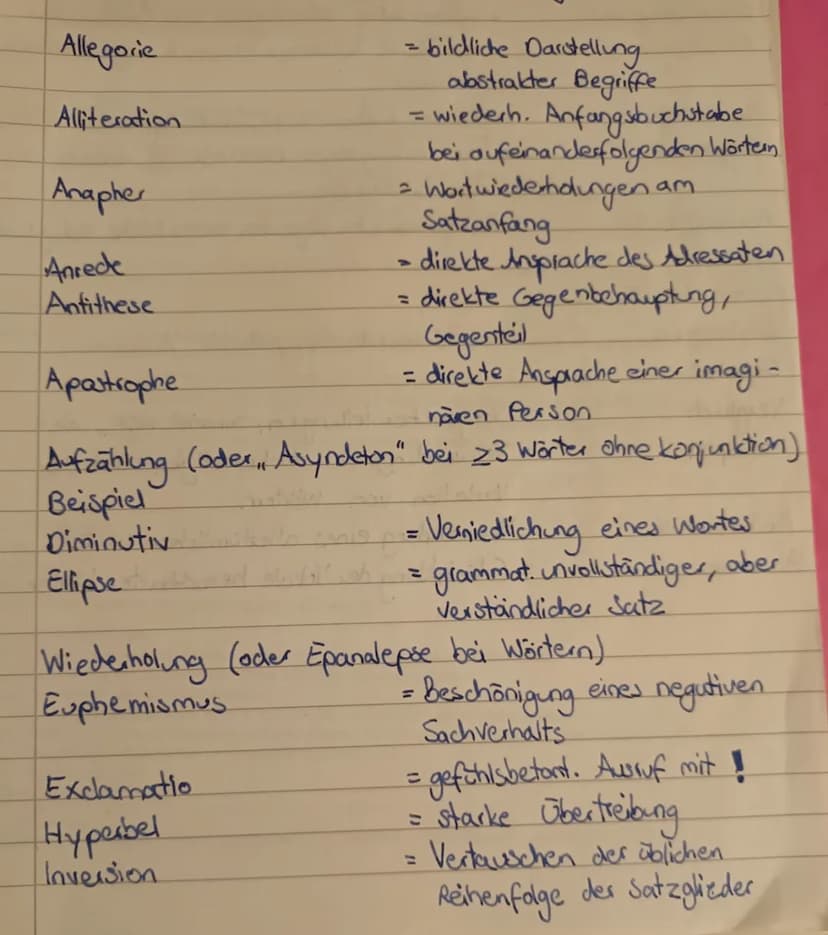 Allegorie = bildliche Darstellung
abstrakter Begriffe
Alliteration = wiederh. Anfangsbuchstabe
bei aufeinanderfolgenden Wörtern
Anapher = Wortwiederholungen am
Satzanfang
Anrede = direkte Ansprache des Adressaten
Antithese = direkte Gegenbehauptung,
Gegenteil
Apastrophe = direkte Ansprache einer imagi-
nären Person
Aufzählung (oder „Asyndeton" bei ≥3 Wörter ohne Konjunktion)
Beispiel
Diminutiv = Verniedlichung eines Wortes
Ellipse = grammat. unvollständiger, aber
verständlicher Satz
Wiederholung (oder Epanalepse bei Wörtern)
Euphemismus = Beschönigung eines negativen
Sachverhalts
Exclamatio = gefühlsbetont. Ausruf mit !
Hyperbel = starke Übertreibung
Inversion = Vertauschen der üblichen
Reihenfolge der Satzglieder